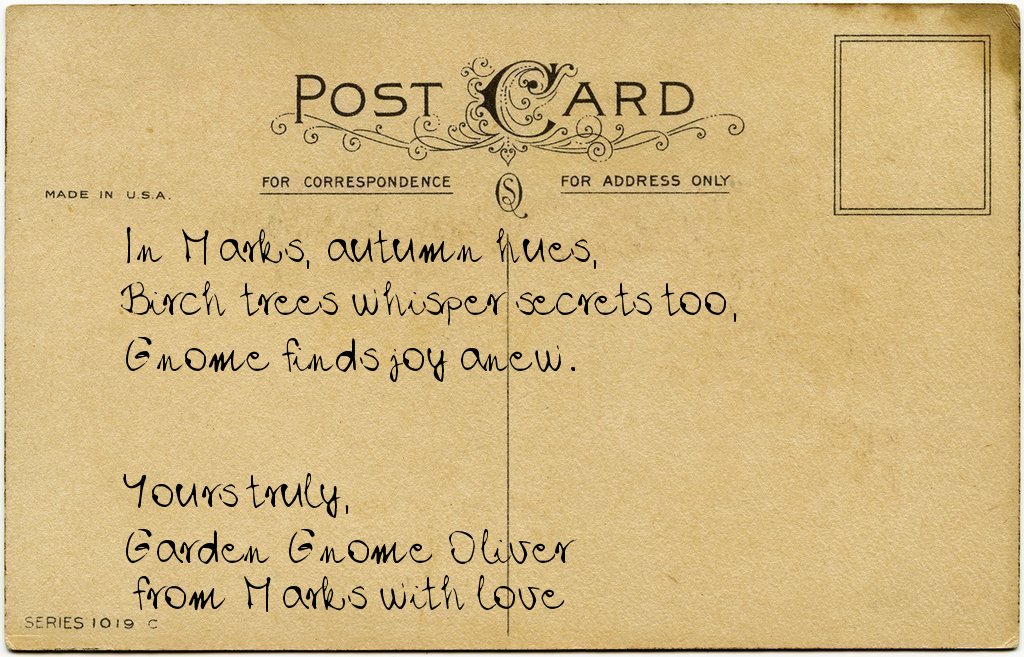 POST CARD
FOR CORRESPONDENCE
FOR ADDRESS ONLY
MADE IN U.S.A.
In Marks, autumn hues,
Birch trees whisper secrets too,
Gnome finds joy anew.
Yours truly,
Garden Gnome Oliver
from Marks with love
SERIES 1019 C